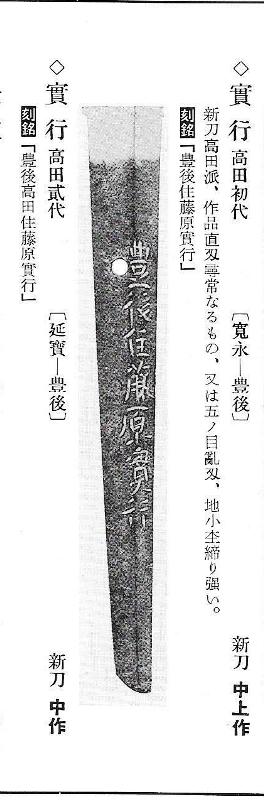 ◇實行 高田初代 〔寬永―豊後〕 新刀 中上作
新刀高田派、作品直刄尋常なるもの、又は五ノ目亂刄、地小杢締り强い。
刻銘「豊後住藤原實行」
豊後住藤原實行
◇實行 高田貳代 〔延寶―豊後〕 新刀 中作
刻銘「豊後高田住藤原實行」